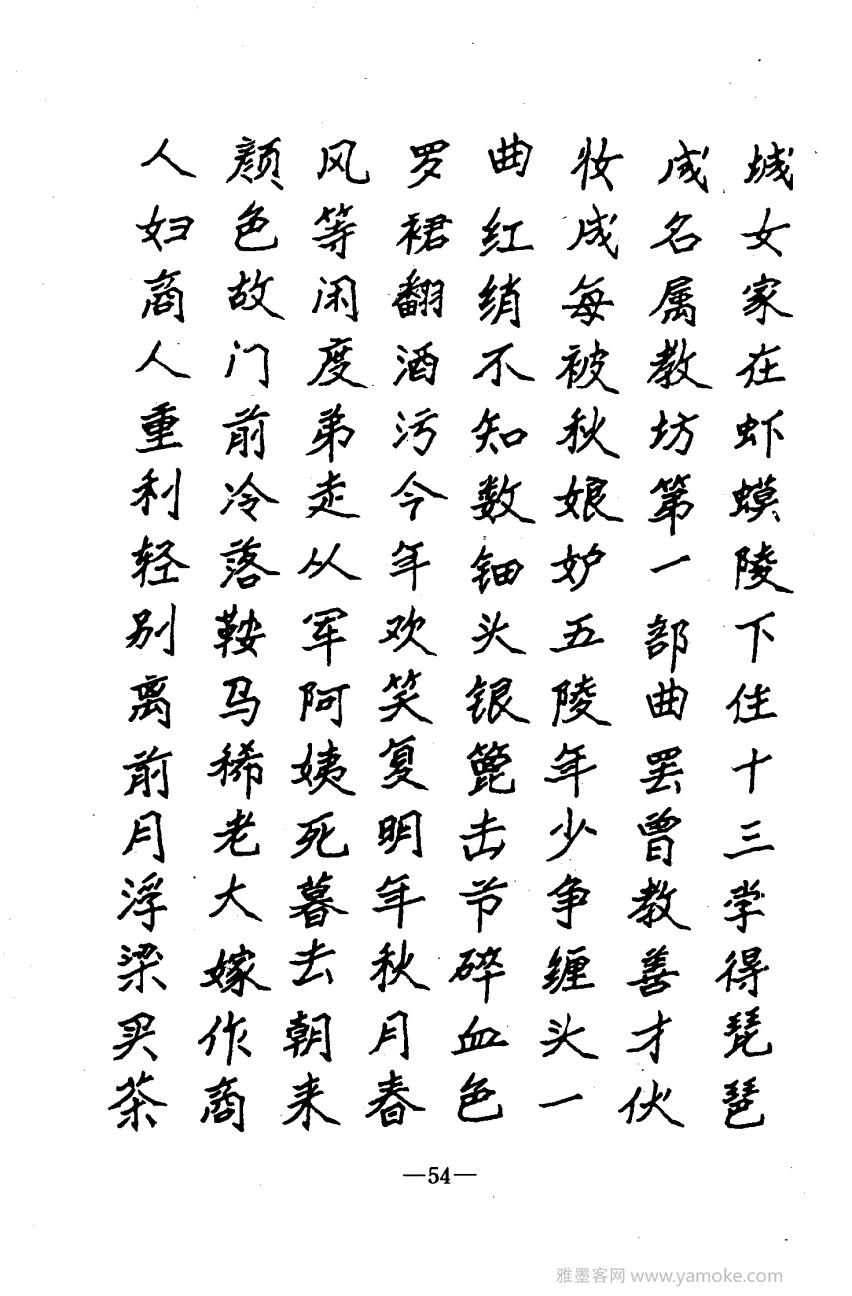 城女家在虾蟆陵下住十三学得琵琶
成名属教坊第一部曲罢曾教善才伏
妆成每被秋娘妒五陵年少争缠头一
曲红绡不知数钿头银篦击节碎血色
罗裙翻酒污今年欢笑复明年秋月春
风等闲度弟走从军阿姨死暮去朝来
颜色故门前冷落鞍马稀老大嫁作商
人妇商人重利轻别离前月浮梁买茶
—54—
雅墨客网 www.yamoke.com